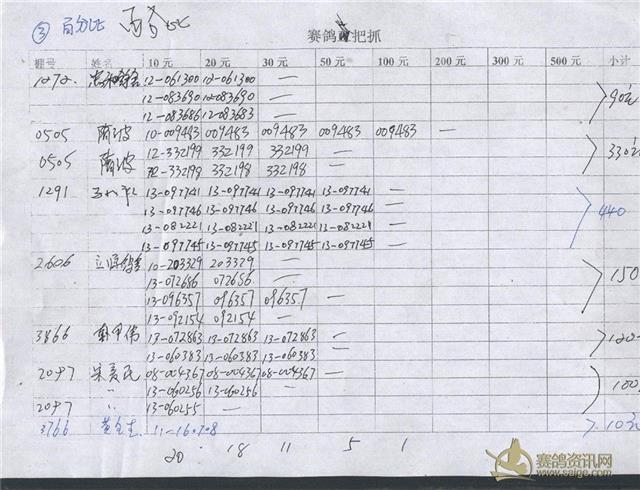 ③ 百分比 百分比
赛鸽 把抓
棚号 姓名 10元 20元 30元 50元 100元 200元 300元 500元 小计
1272 12-061300 12-061300 —
12-083690 12-083690 — 90元
12-083686 12-083683 —
0505 陶波 10-009483 009483 009483 009483 009483 —
0505 陶波 12-332199 332199 332199 — 330元
12-332198 332198 332198 —
1291 13-097741 13-097741 13-097741 13-097741 —
13-097746 13-097746 13-097746 13-097746 — 440
13-082221 13-082221 13-082221 13-082221 —
13-097745 13-097745 13-097745 13-097745 —
2606 10-203329 203329 —
13-072656 072656 — 150
13-096357 096357 096357 —
13-092154 092154 —
3866 13-072863 13-072863 13-072863 — 120
13-060383 13-060383 13-060383 —
2097 08-004367 08-004367 08-004367 —
〃 13-060256 13-060256 — 100
2097 〃 13-060255 —
3766 11-160708 10元
20 18 11 5 1
赛鸽资讯网
www.saige.com